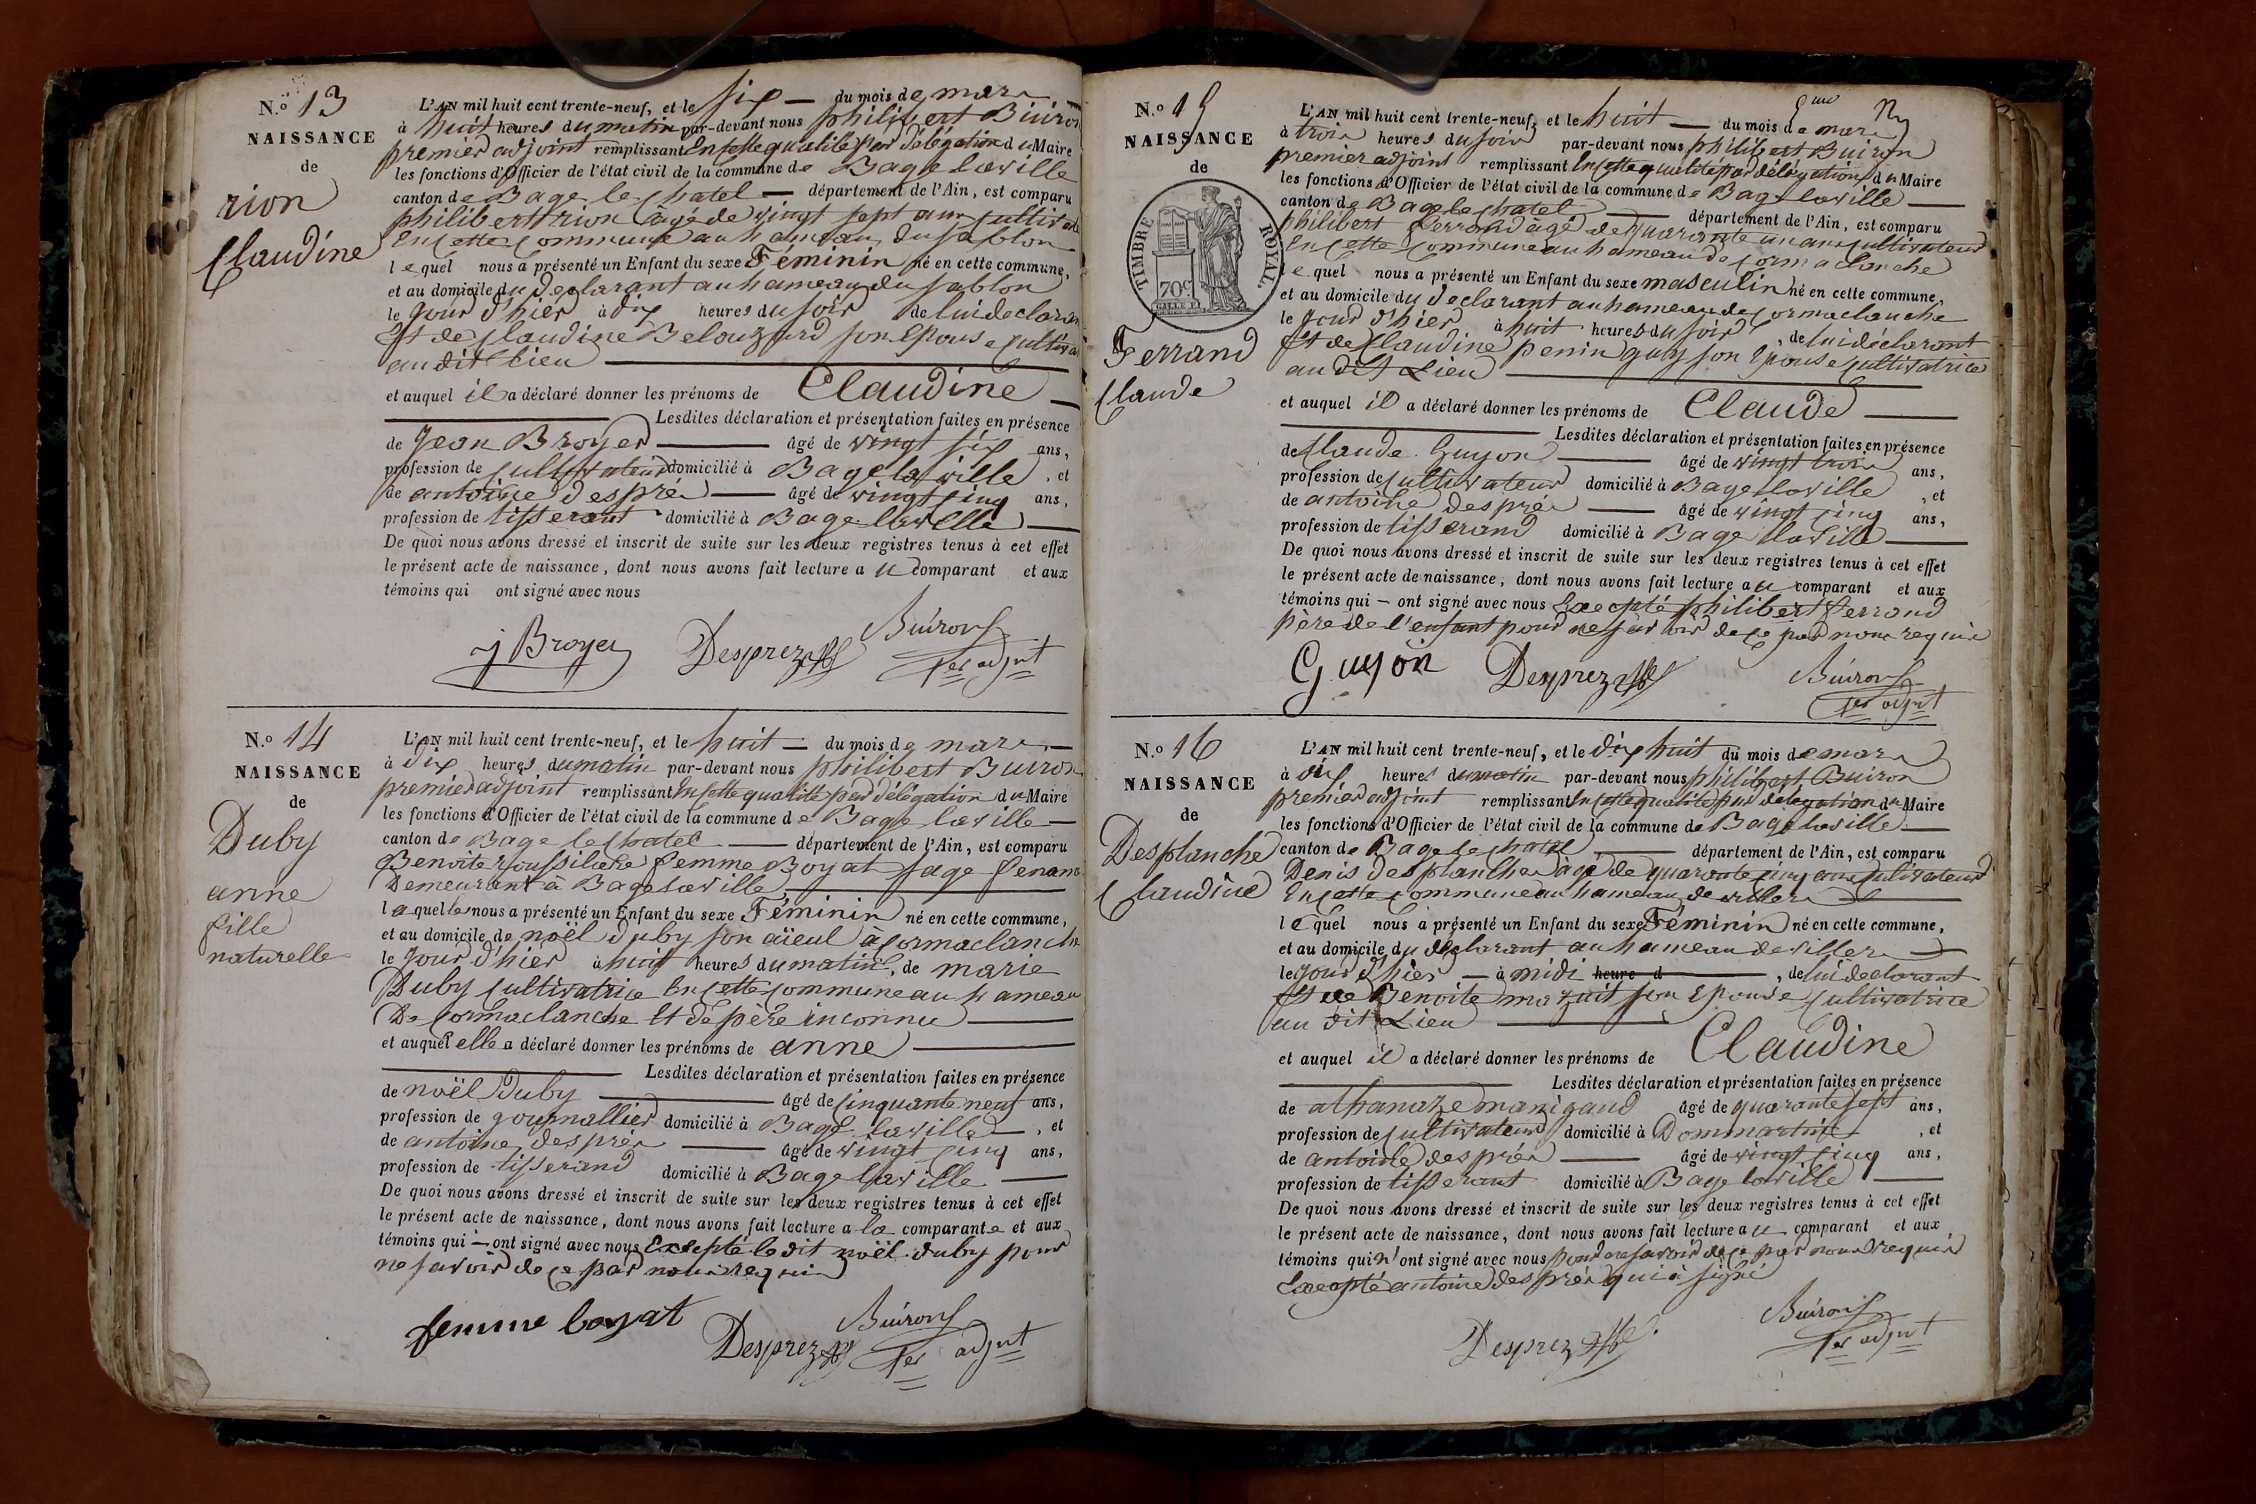 N.º 13
NAISSANCE
de
rion
Claudine
L'AN mil huit cent trente-neuf, et le six — du mois de mars
à huit heures du matin par-devant nous philibert Buiron
premier adjoint remplissant En cette qualité par délégation du Maire
les fonctions d'Officier de l'état civil de la commune de Bage laville
canton de Bage le chatel — département de l'Ain, est comparu
philibert rion âgé de vingt sept ans
En cette commune au hameau du sablon
lequel nous a présenté un Enfant du sexe Féminin né en cette commune,
et au domicile du declarant au hameau du sablon
le jour d'hier à dix heures du soir de lui declarant
Et de Claudine Belouzard son Epouse
au dit lieu
et auquel il a déclaré donner les prénoms de Claudine
Lesdites déclaration et présentation faites en présence
de Jean Broyer âgé de vingt six ans,
profession de cultivateur domicilié à Bage la ville, et
de antoine després âgé de vingt cinq ans,
profession de tisserant domicilié à Bage laville
De quoi nous avons dressé et inscrit de suite sur les deux registres tenus à cet effet
le présent acte de naissance, dont nous avons fait lecture au comparant et aux
témoins qui ont signé avec nous
j Broyer Desprez Buiron
1er adjnt
N.º 14
NAISSANCE
de
Duby
anne
fille
naturelle
L'AN mil huit cent trente-neuf, et le huit — du mois de mars —
à dix heures du matin par-devant nous philibert Buiron
premier adjoint remplissant En cette qualité par délégation du Maire
les fonctions d'Officier de l'état civil de la commune de Bage laville —
canton de Bage le chatel — département de l'Ain, est comparu
Benoite femme Boyat sage femme
Demeurant à Bage laville
laquelle nous a présenté un Enfant du sexe Féminin né en cette commune,
et au domicile de noël duby son aïeul à cormaclanche
le jour d'hier à huit heures du matin, de marie
Duby cultivatrice En cette commune au hameau
De cormaclanche Et de père inconnu
et auquel elle a déclaré donner les prénoms de anne
Lesdites déclaration et présentation faites en présence
de noël Duby âgé de cinquante neuf ans,
profession de journallier domicilié à Bage laville, et
de antoine després âgé de vingt cinq ans,
profession de tisserand domicilié à Bage laville
De quoi nous avons dressé et inscrit de suite sur les deux registres tenus à cet effet
le présent acte de naissance, dont nous avons fait lecture a la comparante et aux
témoins qui — ont signé avec nous Excepté le dit noël duby pour
ne savoir de ce par nous requis
femme boyat Desprez Buiron
1er adjnt
5me
N.º 15
NAISSANCE
de
TIMBRE ROYAL.
70c
Ferrand
Claude
L'AN mil huit cent trente-neuf, et le huit — du mois de mars
à trois heures du soir par-devant nous philibert Buiron
premier adjoint remplissant En cette qualité par délégation du Maire
les fonctions d'Officier de l'état civil de la commune de Bage laville —
canton de Bage le chatel — département de l'Ain, est comparu
philibert ferrand âgé de quarante un ans cultivateur
En cette commune au hameau de cormaclanche
lequel nous a présenté un Enfant du sexe masculin né en cette commune,
et au domicile du declarant au hameau de cormaclanche
le jour d'hier à huit heures du soir, de lui déclarant
Et de Claudine penin guy son Epouse cultivatrice
au dit Lieu
et auquel il a déclaré donner les prénoms de Claude
Lesdites déclaration et présentation faites en présence
de Claude Guyon âgé de vingt trois ans,
profession de cultivateur domicilié à Bage laville, et
de antoine després âgé de vingt cinq ans,
profession de tisserand domicilié à Bage laville
De quoi nous avons dressé et inscrit de suite sur les deux registres tenus à cet effet
le présent acte de naissance, dont nous avons fait lecture au comparant et aux
témoins qui — ont signé avec nous Excepté philibert ferrand
père de l'enfant pour ne savoir de ce par nous requis
Guyon Desprez Buiron
1er adjnt
N.º 16
NAISSANCE
de
Desplanche
Claudine
L'AN mil huit cent trente-neuf, et le dix huit du mois de mars
à dix heures du matin par-devant nous philibert Buiron
premier adjoint remplissant En cette qualité par délégation du Maire
les fonctions d'Officier de l'état civil de la commune de Bage laville —
canton de Bage le chatel — département de l'Ain, est comparu
Denis desplanche âgé de quarante cinq ans cultivateur
En cette commune au hameau de villers
lequel nous a présenté un Enfant du sexe Féminin né en cette commune,
et au domicile du déclarant au hameau de villers
le jour d'hier — à midi heure d, de lui declarant
Et de Benoite mazuit son Epouse cultivatrice
au dit Lieu
et auquel il a déclaré donner les prénoms de Claudine
Lesdites déclaration et présentation faites en présence
de athanaze manigaud âgé de quarante sept ans,
profession de cultivateur domicilié à Dommartin, et
de antoine després âgé de vingt cinq ans,
profession de tisserant domicilié à Bage laville
De quoi nous avons dressé et inscrit de suite sur les deux registres tenus à cet effet
le présent acte de naissance, dont nous avons fait lecture au comparant et aux
témoins qui n'ont signé avec nous pour ne savoir de ce par nous requis
Excepté antoine després qui a signé
Desprez Buiron
1er adjnt